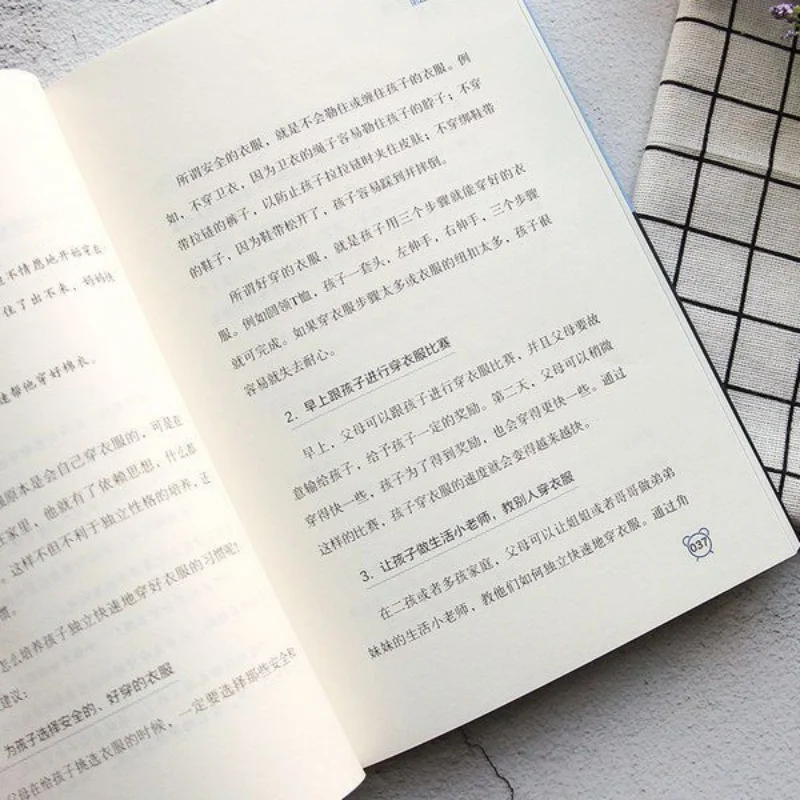 且不情愿地开始穿衣
住了出不来，妈妈
速帮他穿好棉衣。
原本是会自己穿衣服的，可是在
家里，他就有了依赖思想，什么都
。这样不但不利于独立性格的培养，还
惯。
怎么培养孩子独立快速地穿好衣服的习惯呢
建议：
为孩子选择安全的、好穿的衣服
父母在给孩子挑选衣服的时候，一定要选择那些安全和
所谓安全的衣服，就是不会勒住或缠住孩子的衣服。例
如，不穿卫衣，因为卫衣的绳子容易勒住孩子的脖子；不穿
带拉链的裤子，以防止孩子拉拉链时夹住皮肤；不穿绑鞋带
的鞋子，因为鞋带松开了，孩子容易踩到并摔倒。
所谓好穿的衣服，就是孩子用三个步骤就能穿好的衣
服。例如圆领T恤，孩子一套头，左伸手，右伸手，三个步骤
就可完成。如果穿衣服步骤太多或衣服的纽扣太多，孩子很
容易就失去耐心。
2. 早上跟孩子进行穿衣服比赛
早上，父母可以跟孩子进行穿衣服比赛，并且父母要故
意输给孩子，给予孩子一定的奖励。第二天，父母可以稍微
穿得快一些，孩子为了得到奖励，也会穿得更快一些。通过
这样的比赛，孩子穿衣服的速度就会变得越来越快。
3. 让孩子做生活小老师，教别人穿衣服
在二孩或者多孩家庭，父母可以让姐姐或者哥哥做弟弟
妹妹的生活小老师，教他们如何独立快速地穿衣服。通过角
037